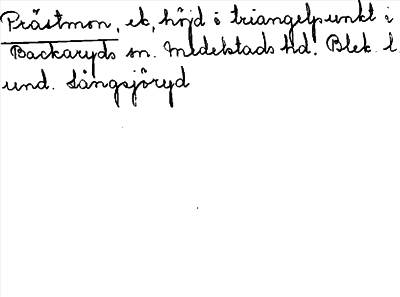 Prästmon, ek, höjd o triangelpunkt i
Backaryds sn. Medelstads hd. Blek. l.
und. Långsjöryd